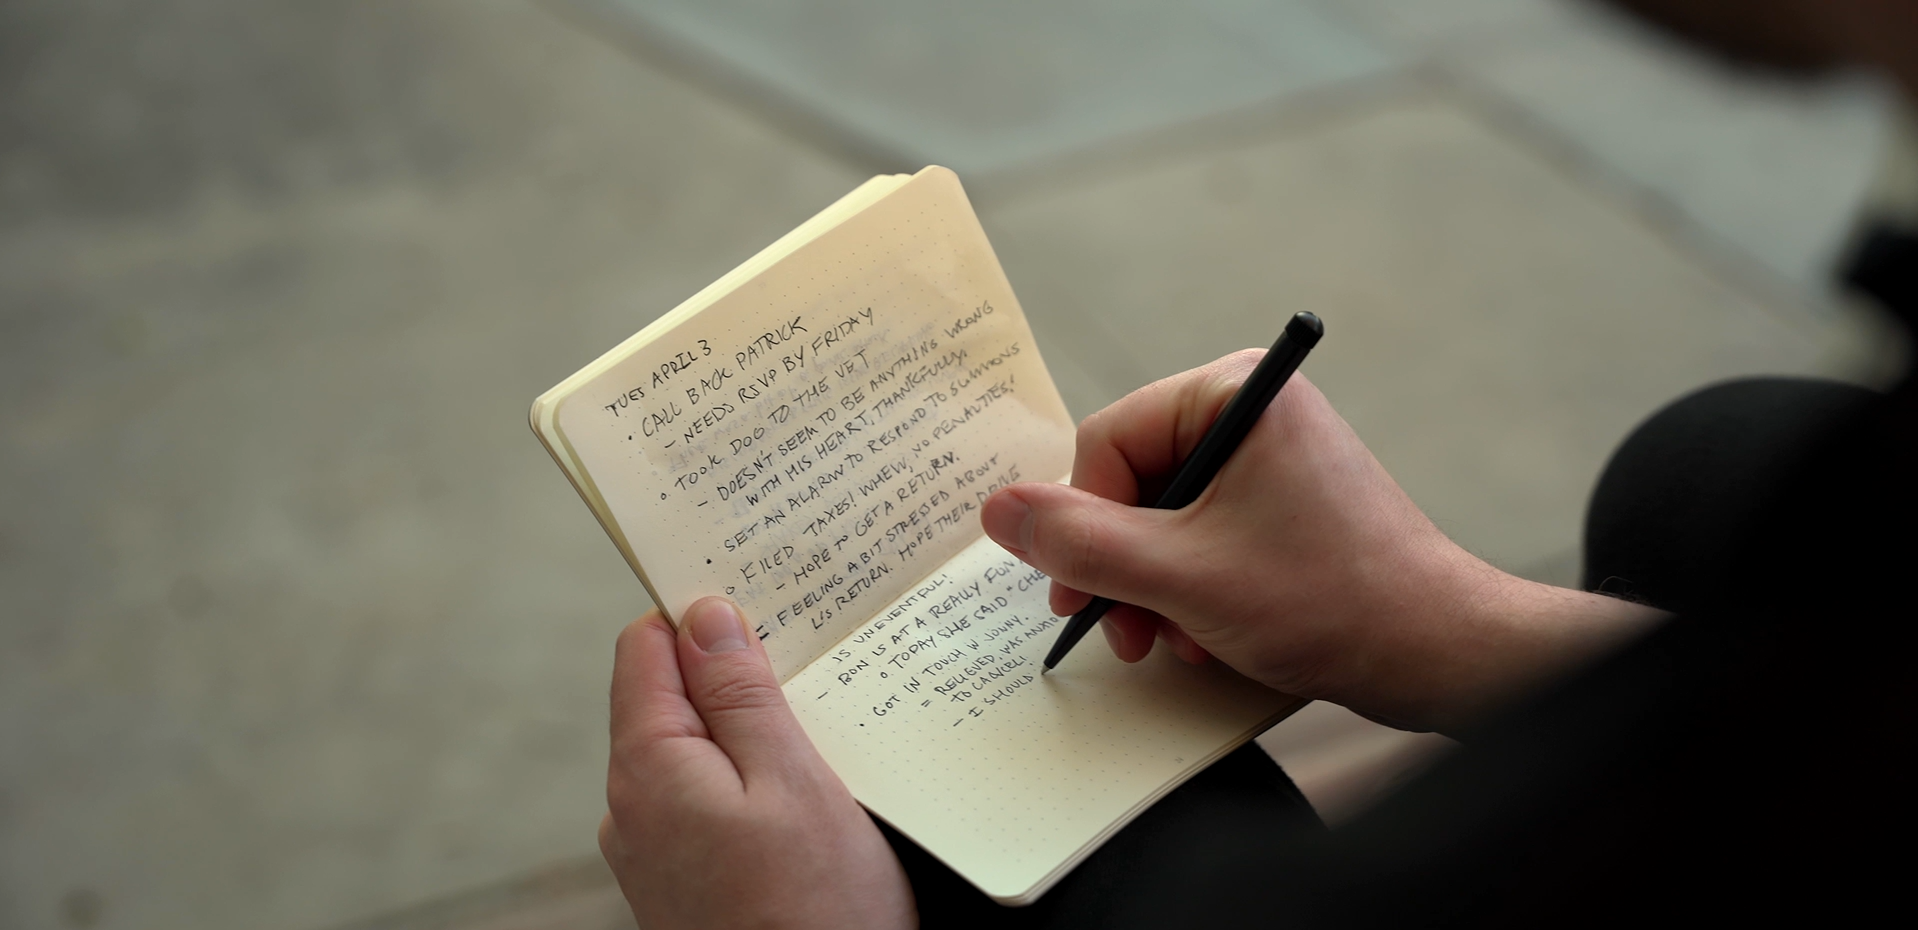 TUES APRIL 3
• CALL BACK PATRICK
– NEEDS RSVP BY FRIDAY
o TOOK DOG TO THE VET
– DOESN'T SEEM TO BE ANYTHING WRONG
WITH HIS HEART, THANKFULLY.
• SET AN ALARM TO RESPOND TO SUMMONS
o FILED TAXES! WHEW, NO PENALTIES!
– HOPE TO GET A RETURN.
= FEELING A BIT STRESSED ABOUT
L'S RETURN. HOPE THEIR DRIVE
IS UNEVENTFUL!
– BON IS AT A REALLY FUN
o TODAY SHE SAID "CHE
• GOT IN TOUCH W JONNY.
= RELIEVED, WAS
TO CANCEL!
– I SHOULD